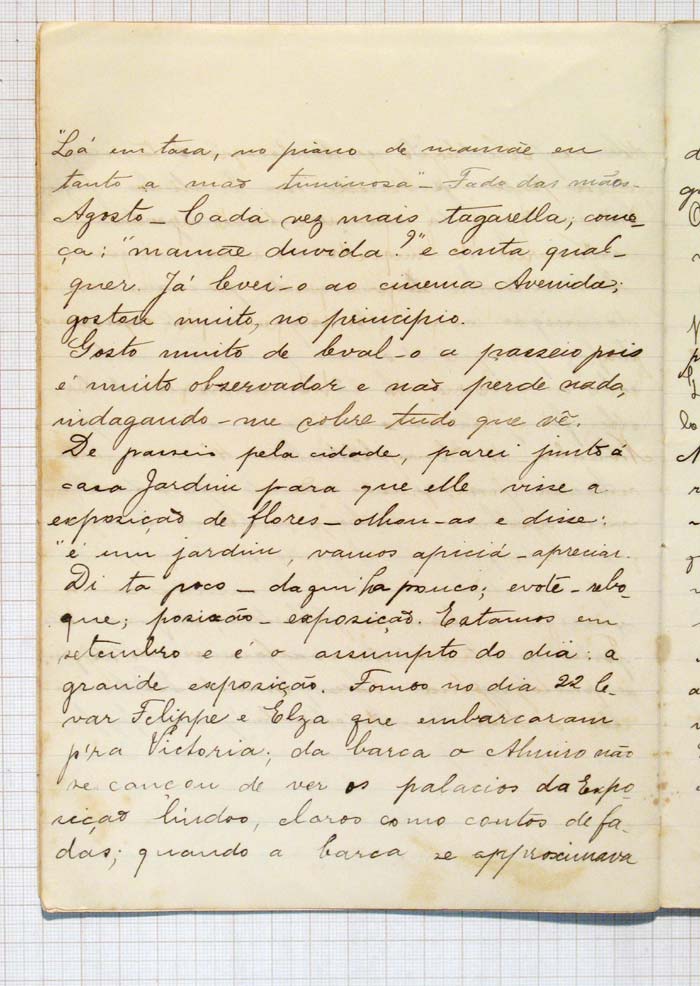 "Lá em tasa, no piano de mamãe eu
tanto a mão tuminosa" - Fado das mãos.
Agosto - Cada vez mais tagarella; come-
ça: "mamãe duvida?" e conta qual-
quer. Já levei-o ao cinema Avenida;
gostou muito, no principio.
Gosto muito de leval-o a passeio pois
é muito observador e não perde nada,
indagando-me sobre tudo que vê.
De passeio pela cidade, parei junto á
casa Jardim para que elle visse a
exposição de flores - olhou-as e disse:
"é um jardim, vamos apiciá - apreciar.
Di ta poco - daqui ha pouco; evote - rebo-
que; posixão - exposição. Estamos em
setembro e é o assumpto do dia: a
grande exposição. Fomos no dia 22 le-
var Felippe e Elza que embarcaram
p'ra Victoria; da barca o Almiro não
se cançou de ver os palacios da Expo-
sição lindos, claros como contos de fa-
das; quando a barca se approximava